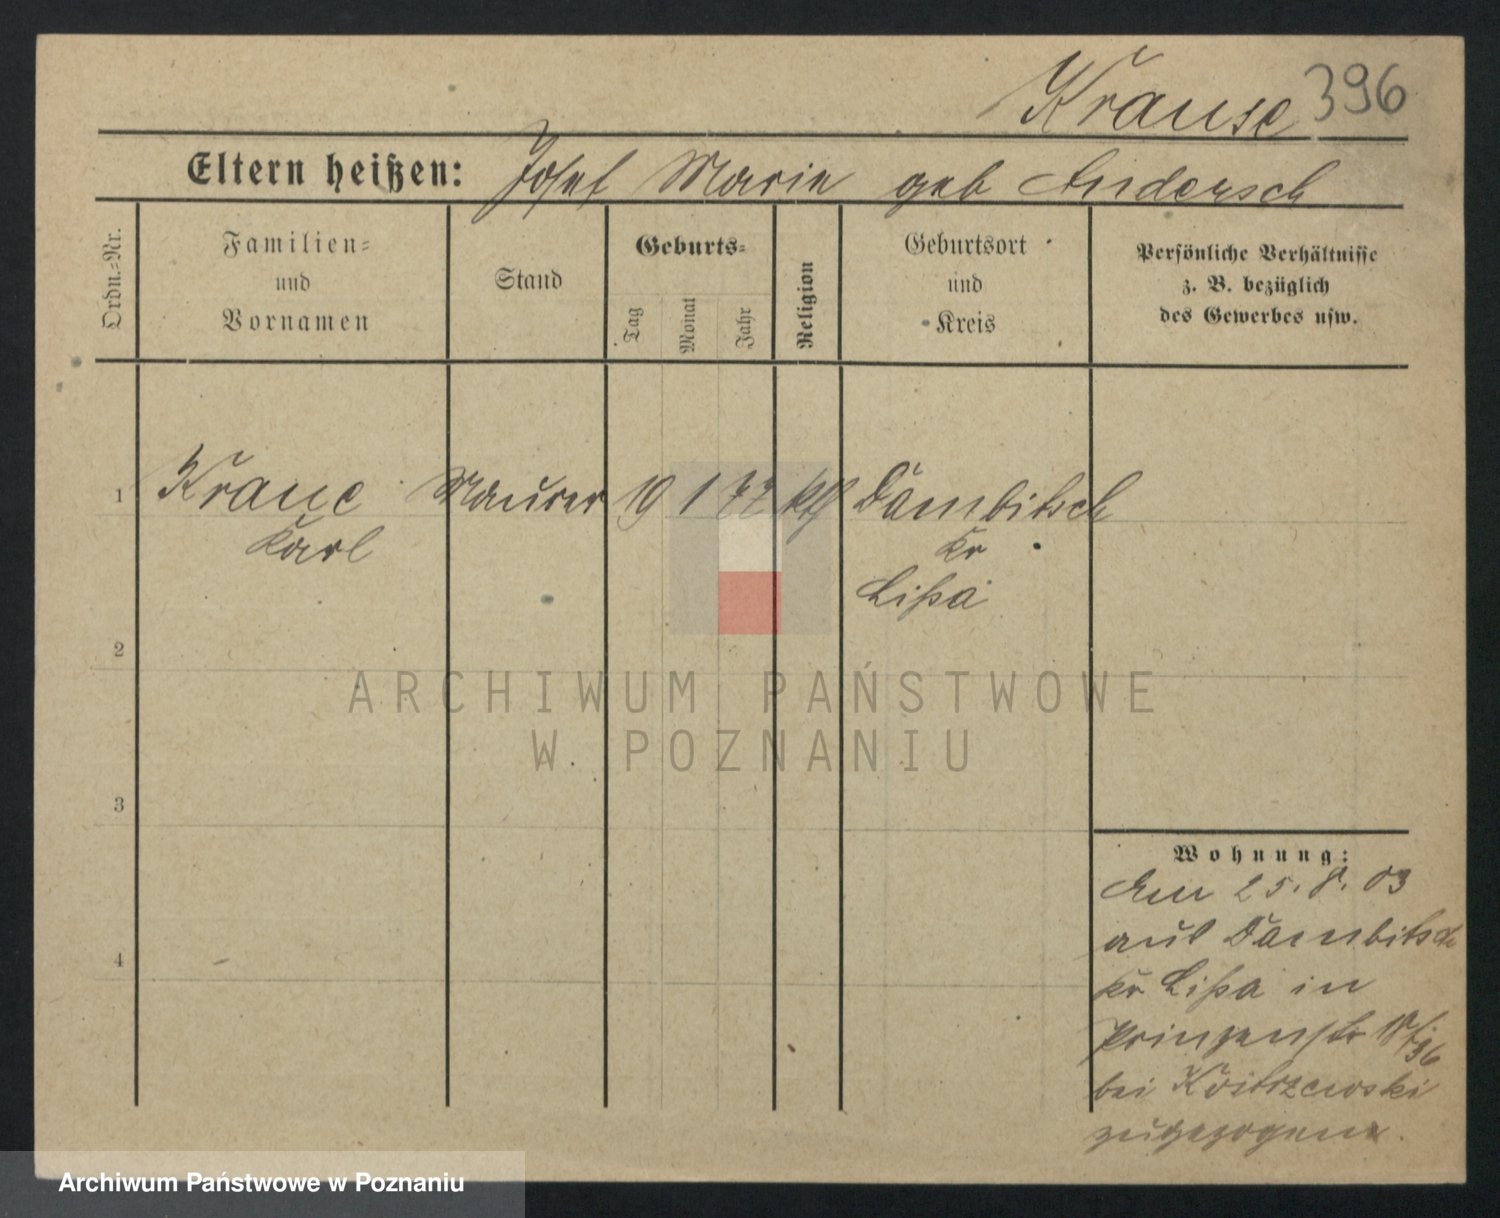 Krause 396
Eltern heißen: Josef Marie geb Andersch
Ordn.-Nr.
Familien-
und
Vornamen
Stand
Geburts-
Tag
Monat
Jahr
Religion
Geburtsort
und
Kreis
Persönliche Verhältnisse
z. B. bezüglich
des Gewerbes usw.
1 Krause Maurer 19 1 77 kth Dambitsch
Karl Kr
Lissa
2
3
4
Wohnung:
Am 25. 8. 03
aus Dambitsch
Kr Lissa in
Prinzenstr
bei
zugezogen.
ARCHIWUM PAŃSTWOWE
W POZNANIU
Archiwum Państwowe w Poznaniu